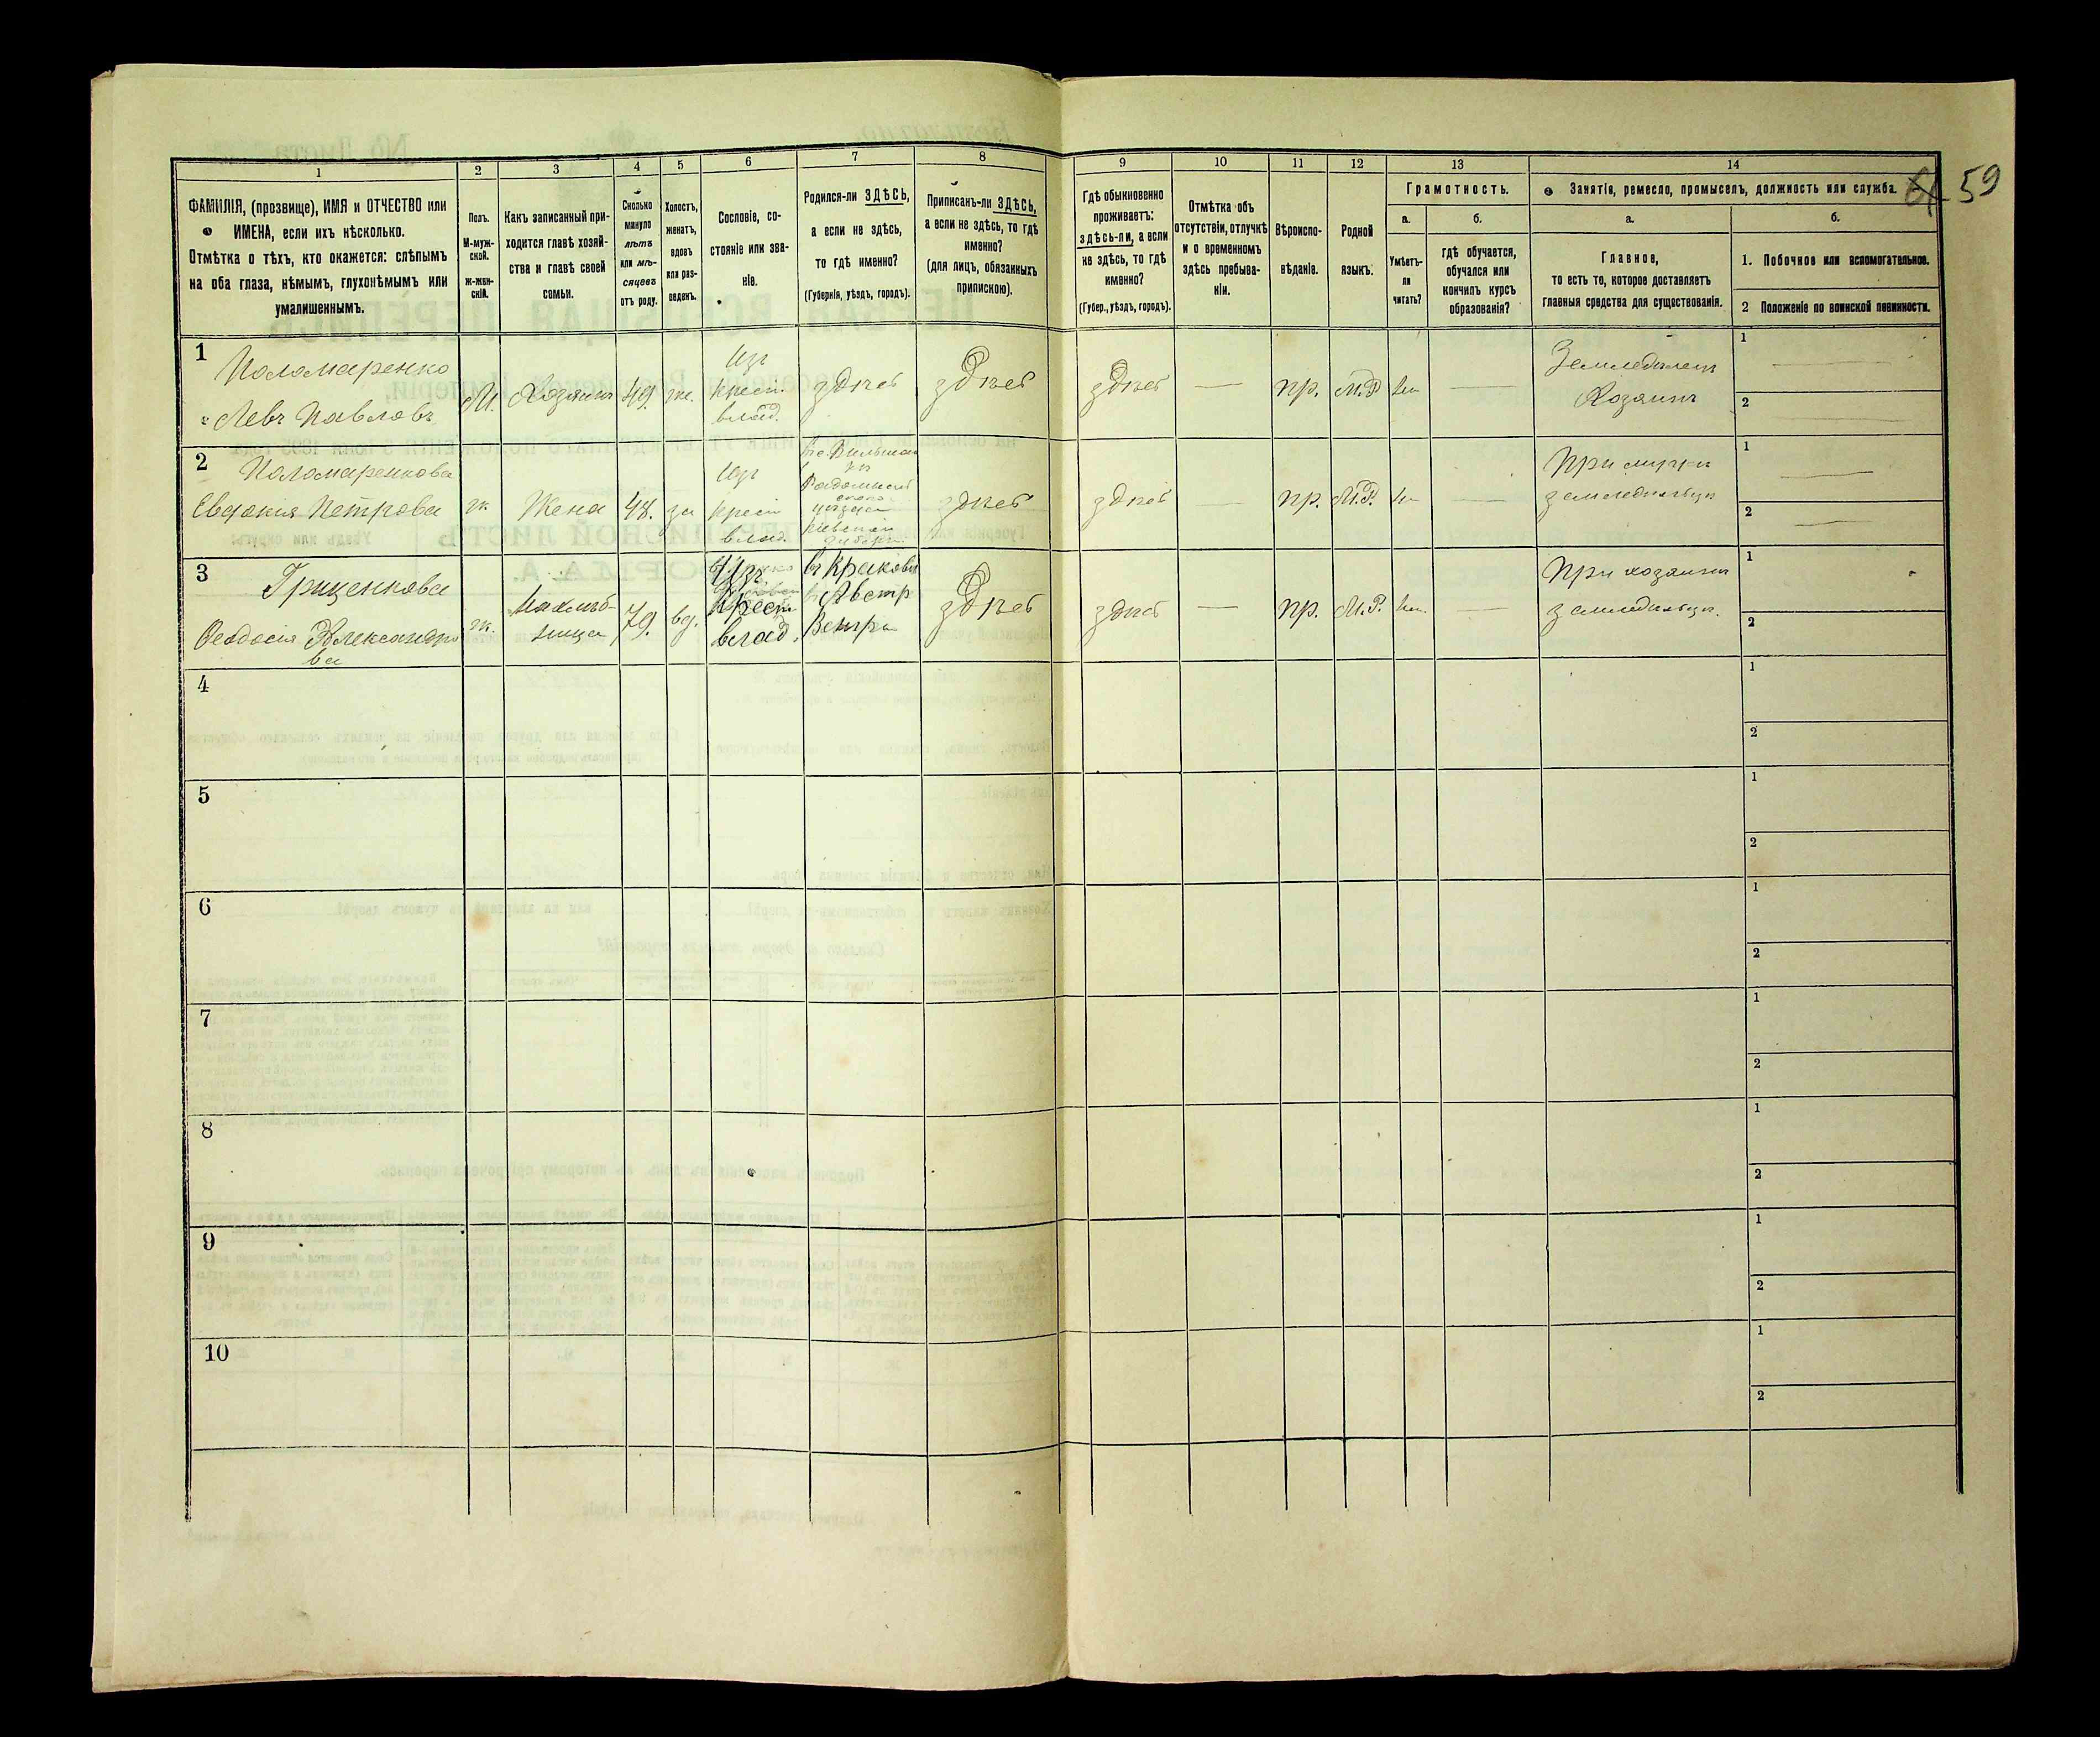 1
2
3
4
5
6
7
8
9
10
11
12
13
14
59
ФАМИЛІЯ, (прозвище), ИМЯ и ОТЧЕСТВО или
ИМЕНА, если ихъ нѣсколько.
Отмѣтка о тѣхъ, кто окажется: слѣпымъ
на оба глаза, нѣмымъ, глухонѣмымъ или
умалишеннымъ.
Полъ.
М-муж-
ской.
Ж-жен-
скій.
Какъ записанный при-
ходится главѣ хозяй-
ства и главѣ своей
семьи.
Сколько
минуло
лѣтъ
или мѣ-
сяцевъ
отъ роду.
Холостъ,
женатъ,
вдовъ
или раз-
веденъ.
Сословіе, со-
стояніе или зва-
ніе.
Родился-ли ЗДѢСЬ,
а если не здѣсь,
то гдѣ именно?
(Губернія, уѣздъ, городъ).
Приписанъ-ли ЗДѢСЬ,
а если не здѣсь, то гдѣ
именно?
(для лицъ, обязанныхъ
припискою).
Гдѣ обыкновенно
проживаетъ:
здѣсь-ли, а если
не здѣсь, то гдѣ
именно?
(Губер., уѣздъ, городъ).
Отмѣтка объ
отсутствіи, отлучкѣ
и о временномъ
здѣсь пребыва-
ніи.
Вѣроиспо-
вѣданіе.
Родной
языкъ.
Грамотность.
а.
Умѣетъ-
ли
читать?
б.
гдѣ обучается,
обучался или
кончилъ курсъ
образованія?
Занятія, ремесло, промыселъ, должность или служба.
а.
Главное,
то есть то, которое доставляетъ
главныя средства для существованія.
б.
1. Побочное или вспомогательное.
2 Положеніе по воинской повинности.
1
Поломаренко
Левъ Павловъ
М.
Хозяинъ
49.
же.
Изъ
крест.
влад.
здѣсь
здѣсь
здѣсь
—
пр.
М.Р.
—
Земледѣлецъ
Хозяинъ
1
2
2
Поломаренкова
Евдокия Петрова
ж.
Жена
48.
за
Изъ
крест
влад.
здѣсь
здѣсь
пр.
М.Р.
—
При мужѣ
1
2
3
Гриценкова
Феодосія Александро
ва
ж.
Нахлѣб-
ница
79.
вд.
Изъ
Крест
влад.
здѣсь
здѣсь
—
пр.
М.Р.
—
При хозяинѣ
1
2
4
1
2
5
1
2
6
1
2
7
1
2
8
1
2
9
1
2
10
1
2